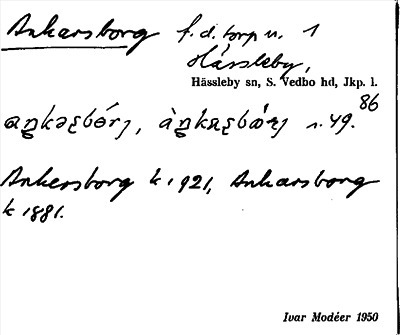 Ankarsborg f.d. torp u. 1
Hässleby,
Hässleby sn, S. Vedbo hd, Jkp. l.
86
s. 49.
Ankersborg k 1921, Ankarsborg
k 1881.
Ivar Modéer 1950